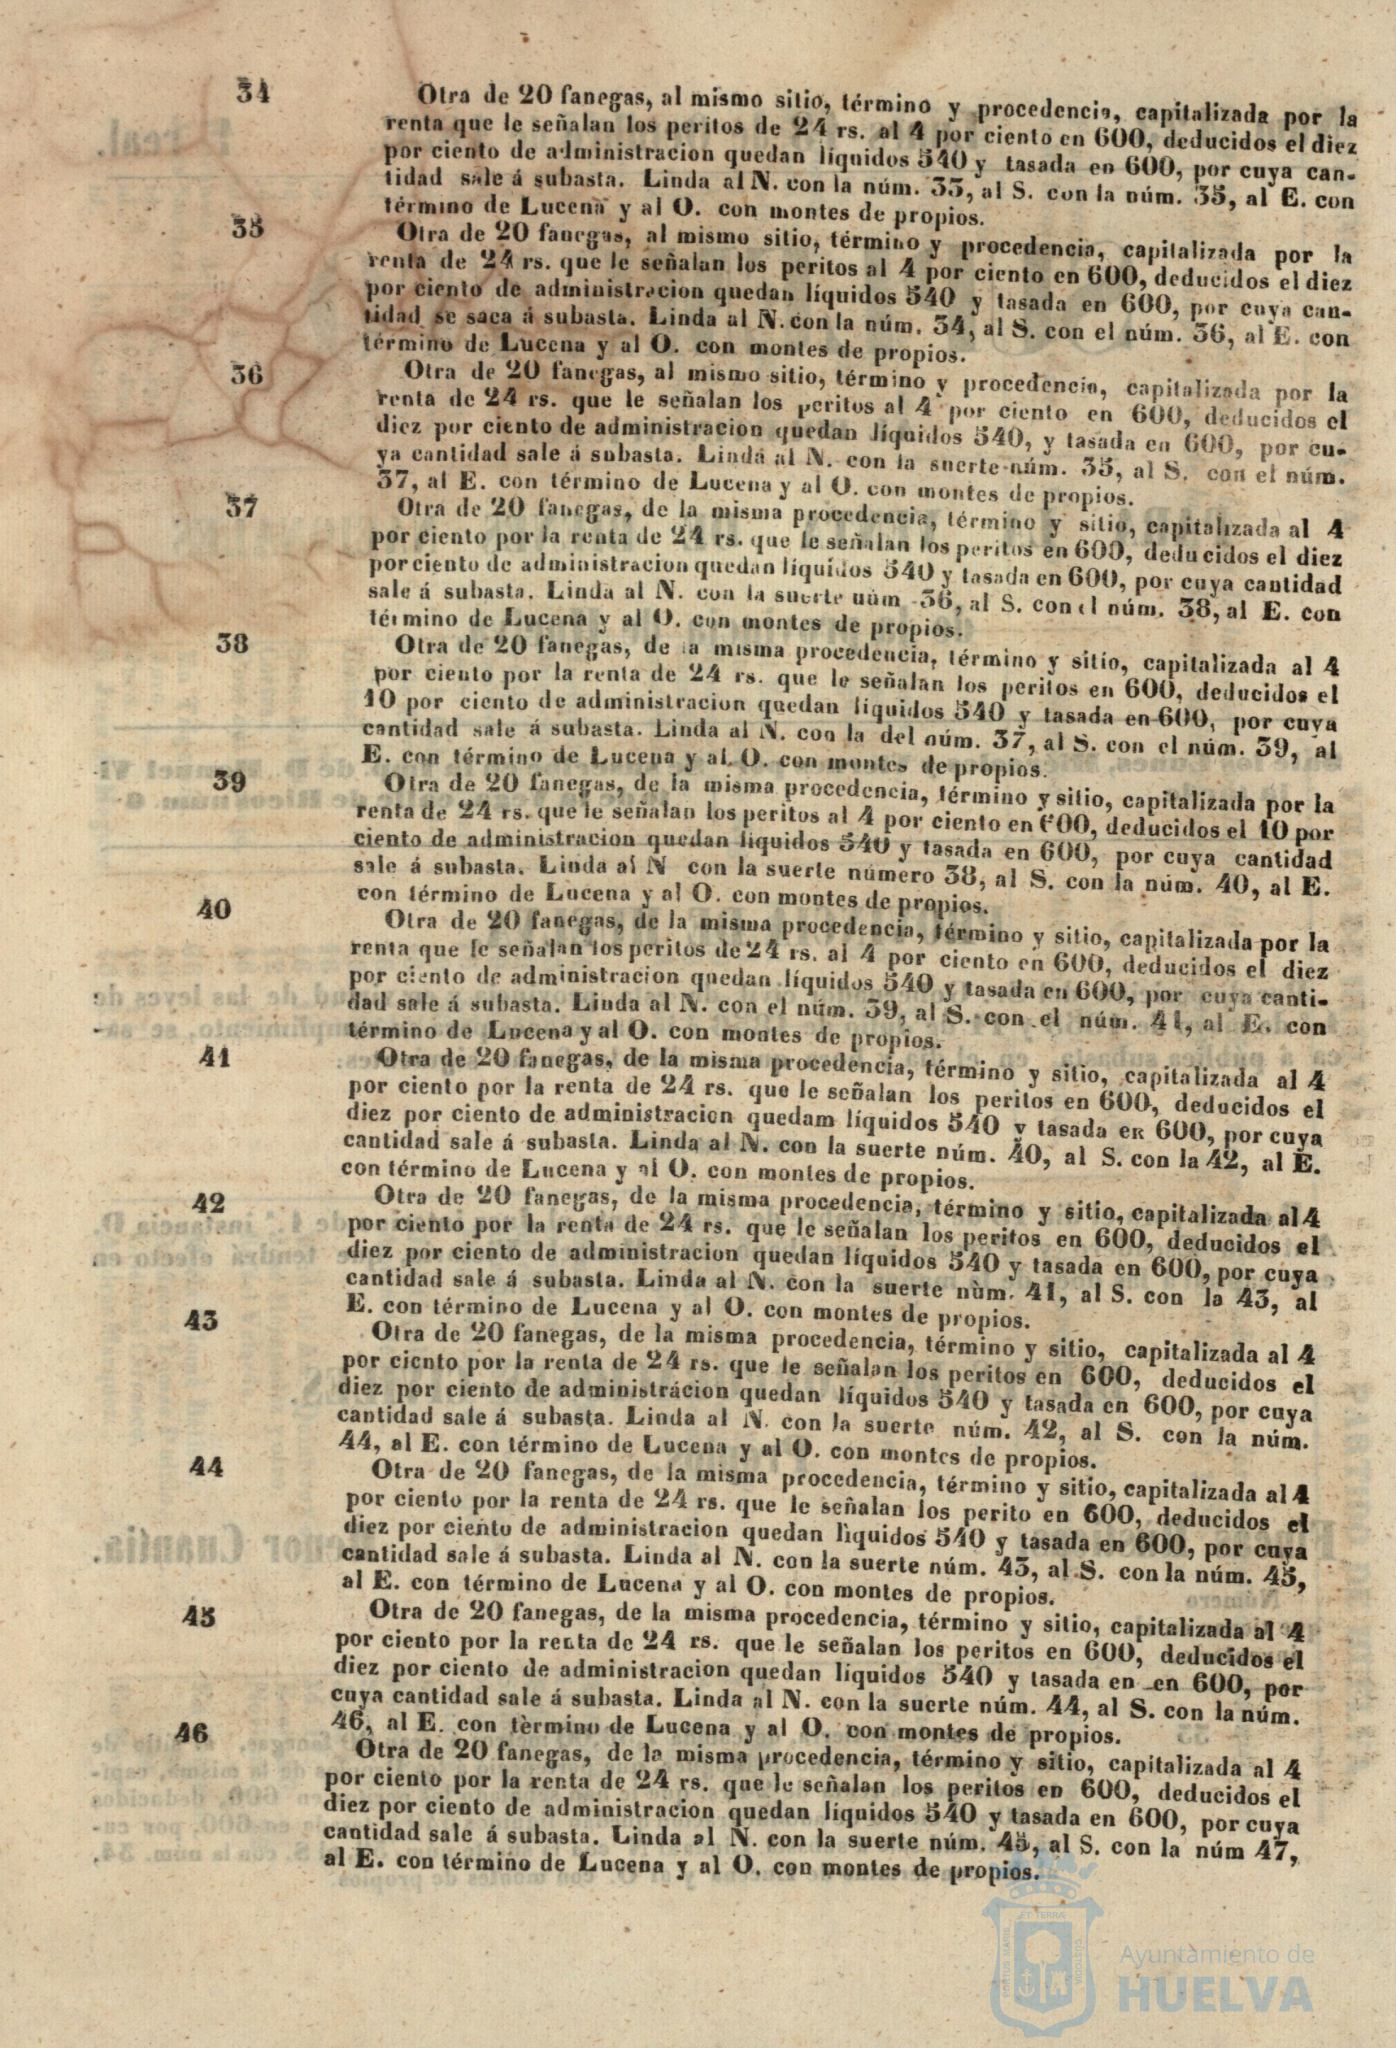 34 Otra de 20 fanegas, al mismo sitio, término y procedencia, capitalizada por la
renta que le señalan los peritos de 24 rs. al 4 por ciento en 600, deducidos el diez
por ciento de administracion quedan líquidos 540 y tasada en 600, por cuya can-
tidad sale á subasta. Linda al N. con la núm. 33, al S. con la núm. 35, al E. con
término de Lucena y al O. con montes de propios.
35 Otra de 20 fanegas, al mismo sitio, término y procedencia, capitalizada por la
renta de 24 rs. que le señalan los peritos al 4 por ciento en 600, deducidos el diez
por ciento de administracion quedan líquidos 540 y tasada en 600, por cuya can-
tidad se saca á subasta. Linda al N. con la núm. 34, al S. con el núm. 36, al E. con
término de Lucena y al O. con montes de propios.
36 Otra de 20 fanegas, al mismo sitio, término y procedencia, capitalizada por la
renta de 24 rs. que le señalan los peritos al 4 por ciento en 600, deducidos el
diez por ciento de administracion quedan líquidos 540, y tasada en 600, por cu-
ya cantidad sale á subasta. Linda al N. con la suerte núm. 35, al S. con el núm.
37, al E. con término de Lucena y al O. con montes de propios.
37 Otra de 20 fanegas, de la misma procedencia, término y sitio, capitalizada al 4
por ciento por la renta de 24 rs. que le señalan los peritos en 600, deducidos el diez
por ciento de administracion quedan líquidos 540 y tasada en 600, por cuya cantidad
sale á subasta. Linda al N. con la suerte núm 36, al S. con el núm. 38, al E. con
término de Lucena y al O. con montes de propios.
38 Otra de 20 fanegas, de la misma procedencia, término y sitio, capitalizada al 4
por ciento por la renta de 24 rs. que le señalan los peritos en 600, deducidos el
10 por ciento de administracion quedan líquidos 540 y tasada en 600, por cuya
cantidad sale á subasta. Linda al N. con la del núm. 37, al S. con el núm. 39, al
E. con término de Lucena y al O. con montes de propios.
39 Otra de 20 fanegas, de la misma procedencia, término y sitio, capitalizada por la
renta de 24 rs. que le señalan los peritos al 4 por ciento en 600, deducidos el 10 por
ciento de administracion quedan líquidos 540 y tasada en 600, por cuya cantidad
sale á subasta. Linda al N con la suerte número 38, al S. con la núm. 40, al E.
con término de Lucena y al O. con montes de propios.
40 Otra de 20 fanegas, de la misma procedencia, término y sitio, capitalizada por la
renta que le señalan los peritos de 24 rs. al 4 por ciento en 600, deducidos el diez
por ciento de administracion quedan líquidos 540 y tasada en 600, por cuya canti-
dad sale á subasta. Linda al N. con el núm. 39, al S. con el núm. 41, al E. con
término de Lucena y al O. con montes de propios.
41 Otra de 20 fanegas, de la misma procedencia, término y sitio, capitalizada al 4
por ciento por la renta de 24 rs. que le señalan los peritos en 600, deducidos el
diez por ciento de administracion quedam líquidos 540 y tasada en 600, por cuya
cantidad sale á subasta. Linda al N. con la suerte núm. 40, al S. con la 42, al E.
con término de Lucena y al O. con montes de propios.
42 Otra de 20 fanegas, de la misma procedencia, término y sitio, capitalizada al 4
por ciento por la renta de 24 rs. que le señalan los peritos en 600, deducidos el
diez por ciento de administracion quedan líquidos 540 y tasada en 600, por cuya
cantidad sale á subasta. Linda al N. con la suerte nùm. 41, al S. con la 43, al
E. con término de Lucena y al O. con montes de propios.
43 Otra de 20 fanegas, de la misma procedencia, término y sitio, capitalizada al 4
por ciento por la renta de 24 rs. que le señalan los peritos en 600, deducidos el
diez por ciento de administrácion quedan líquidos 540 y tasada en 600, por cuya
cantidad sale á subasta. Linda al N. con la suerte núm. 42, al S. con la núm.
44, al E. con término de Lucena y al O. con montes de propios.
44 Otra de 20 fanegas, de la misma procedencia, término y sitio, capitalizada al 4
por ciento por la renta de 24 rs. que le señalan los perito en 600, deducidos el
diez por ciento de administracion quedan lìquidos 540 y tasada en 600, por cuya
cantidad sale á subasta. Linda al N. con la suerte núm. 43, al S. con la núm. 45,
al E. con término de Lucena y al O. con montes de propios.
45 Otra de 20 fanegas, de la misma procedencia, término y sitio, capitalizada al 4
por ciento por la renta de 24 rs. que le señalan los peritos en 600, deducidos el
diez por ciento de administracion quedan líquidos 540 y tasada en en 600, por
cuya cantidad sale á subasta. Linda al N. con la suerte núm. 44, al S. con la núm.
46, al E. con tèrmino de Lucena y al O. con montes de propios.
46 Otra de 20 fanegas, de la misma procedencia, término y sitio, capitalizada al 4
por ciento por la renta de 24 rs. que le señalan los peritos en 600, deducidos el
diez por ciento de administracion quedan líquidos 540 y tasada en 600, por cuya
cantidad sale á subasta. Linda al N. con la suerte núm. 45, al S. con la núm 47,
al E. con término de Lucena y al O. con montes de propios.
Ayuntamiento de
HUELVA